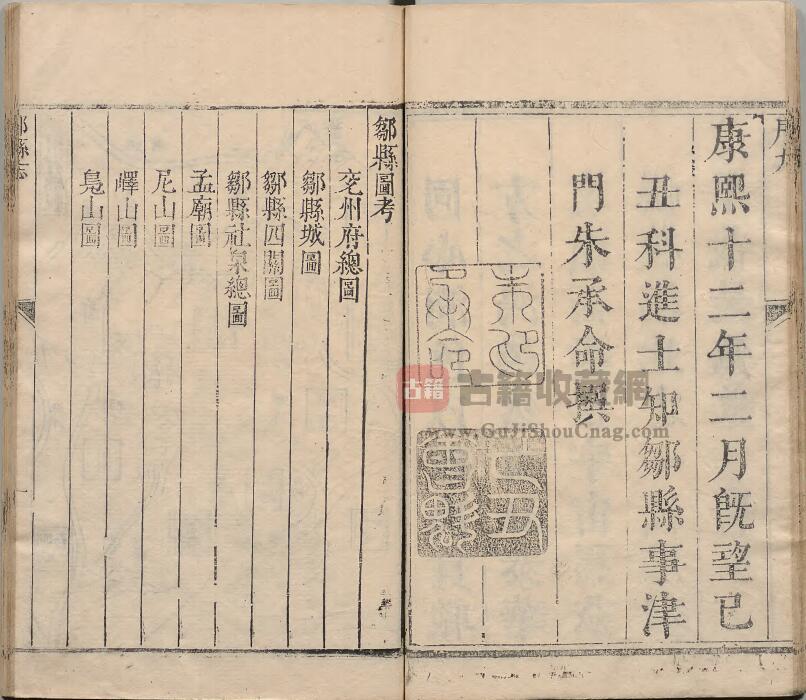 康熙十二年二月旣望己
丑科進士知鄒縣事津
門朱承命撰
鄒縣圖考
兖州府總圖
鄒縣城圖
鄒縣四關圖
鄒縣社泉總圖
孟廟圖
尼山圖
嶧山圖
鳧山圖
鄒縣志
古籍
古籍收藏網
www.GuJiShouCnag.com